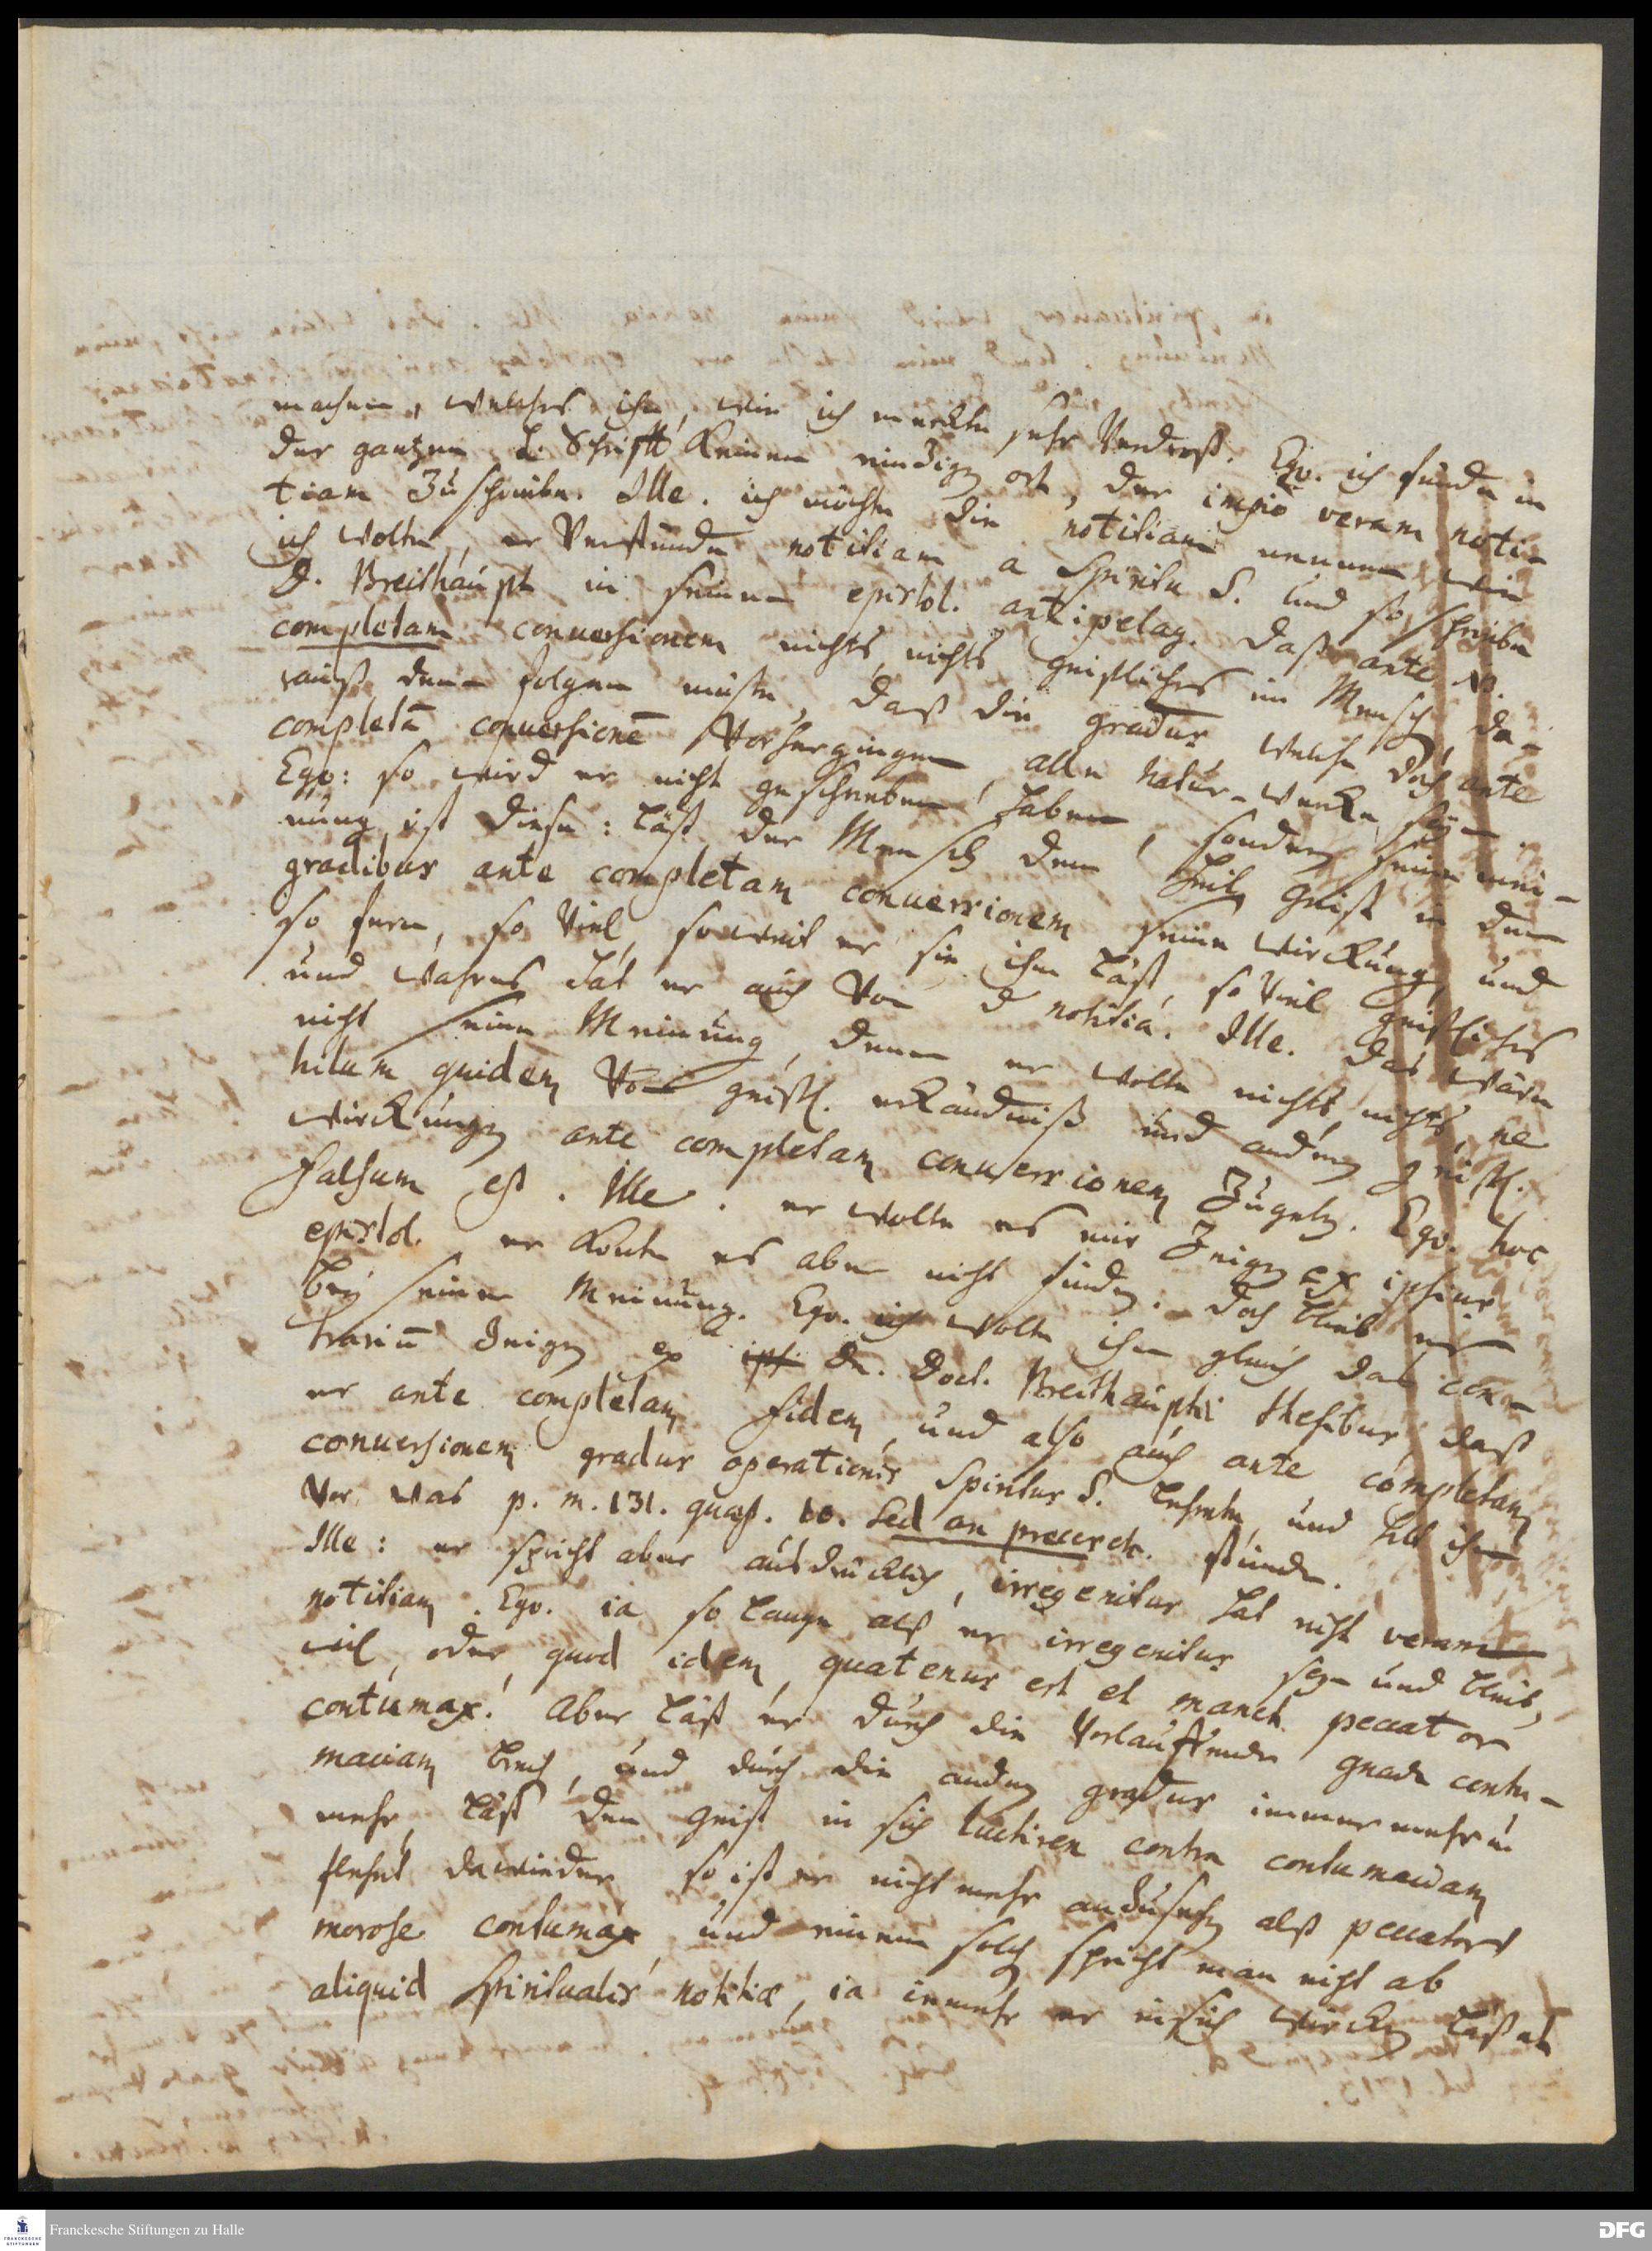 machen, welches ihn, wie ich merckte sehr Verdroß. Ego. ich finde in
der gantzen h. Schrifft keinen eindigen ort, der impio veram noti-
tiam Zuschreibe. Ille. ich möchte die notitiam nennen wie
ich wolte, er Verstünde notitiam a Spiritu S. und so schreibe
D. Breithaupt in seinen epistol. antipelag. daß ante NB.
completam conversionem nichts, nichts geistliches im Mensch, da-
rauß denn folgen müste, daß die gradus, welche doch ante
completā conversionē Vorhergingen, alle Natur-wercke seyn.
Ego: so wird er nicht geschrieben haben, sondern seine mei-
nung ist diese: läst der Mensch dem heil. Geist in den
gradibus ante completam conversionem seine wirckung, und
so fern, so Viel, soweit er sie ihm läst, so Viel geistliches
und wahres hat er auch Von d notitia. Ille. das wäre
nicht seine Meinung, denn er wolte nichts, nichts, ne
hilum quidem Von geistl. erkändniß und andern geistl.
wirckungen ante completam conversionem Zugeben. Ego. hoc
falsum est. Ille. er wolte es mir Zeigen ex ipsius
epistol. er konte es aber nicht finden. doch blieb er
bey seiner Meinung. Ego. ich wolte ihm gleich das con-
trariū Zeigen ex ipsi Dn. Doct. Breithaupti thesibus, daß
er ante completam fidem, und also auch ante completam
conversionem gradus operationis Spiritus S. lehrete, und hilt ihm
Vor was p. m. 131. quæst. 60. Sed an precur etc. stünde.
Ille: er spricht aber ausdrücklich, irregenitus hat nicht veram
notitiam. Ego. ia so lange alß er irregenitus seyn und bleib,
wil, oder quod idem, quatenus est et manet peccator
contumax. Aber läst er durch die Vorlauffende gnade contu-
maciam brech, und durch die andern gradus immer mehr u.
mehr, läst den Geist in sich luctiren contra contumaciam
flehet dawieder so ist er nicht mehr anzusehen alß peccator
morose contumax und einem solch spricht man nicht ab
aliquid spiritualis notitiæ, ia iemehr er in sich wircken läst
Franckesche Stiftungen zu Halle
DFG